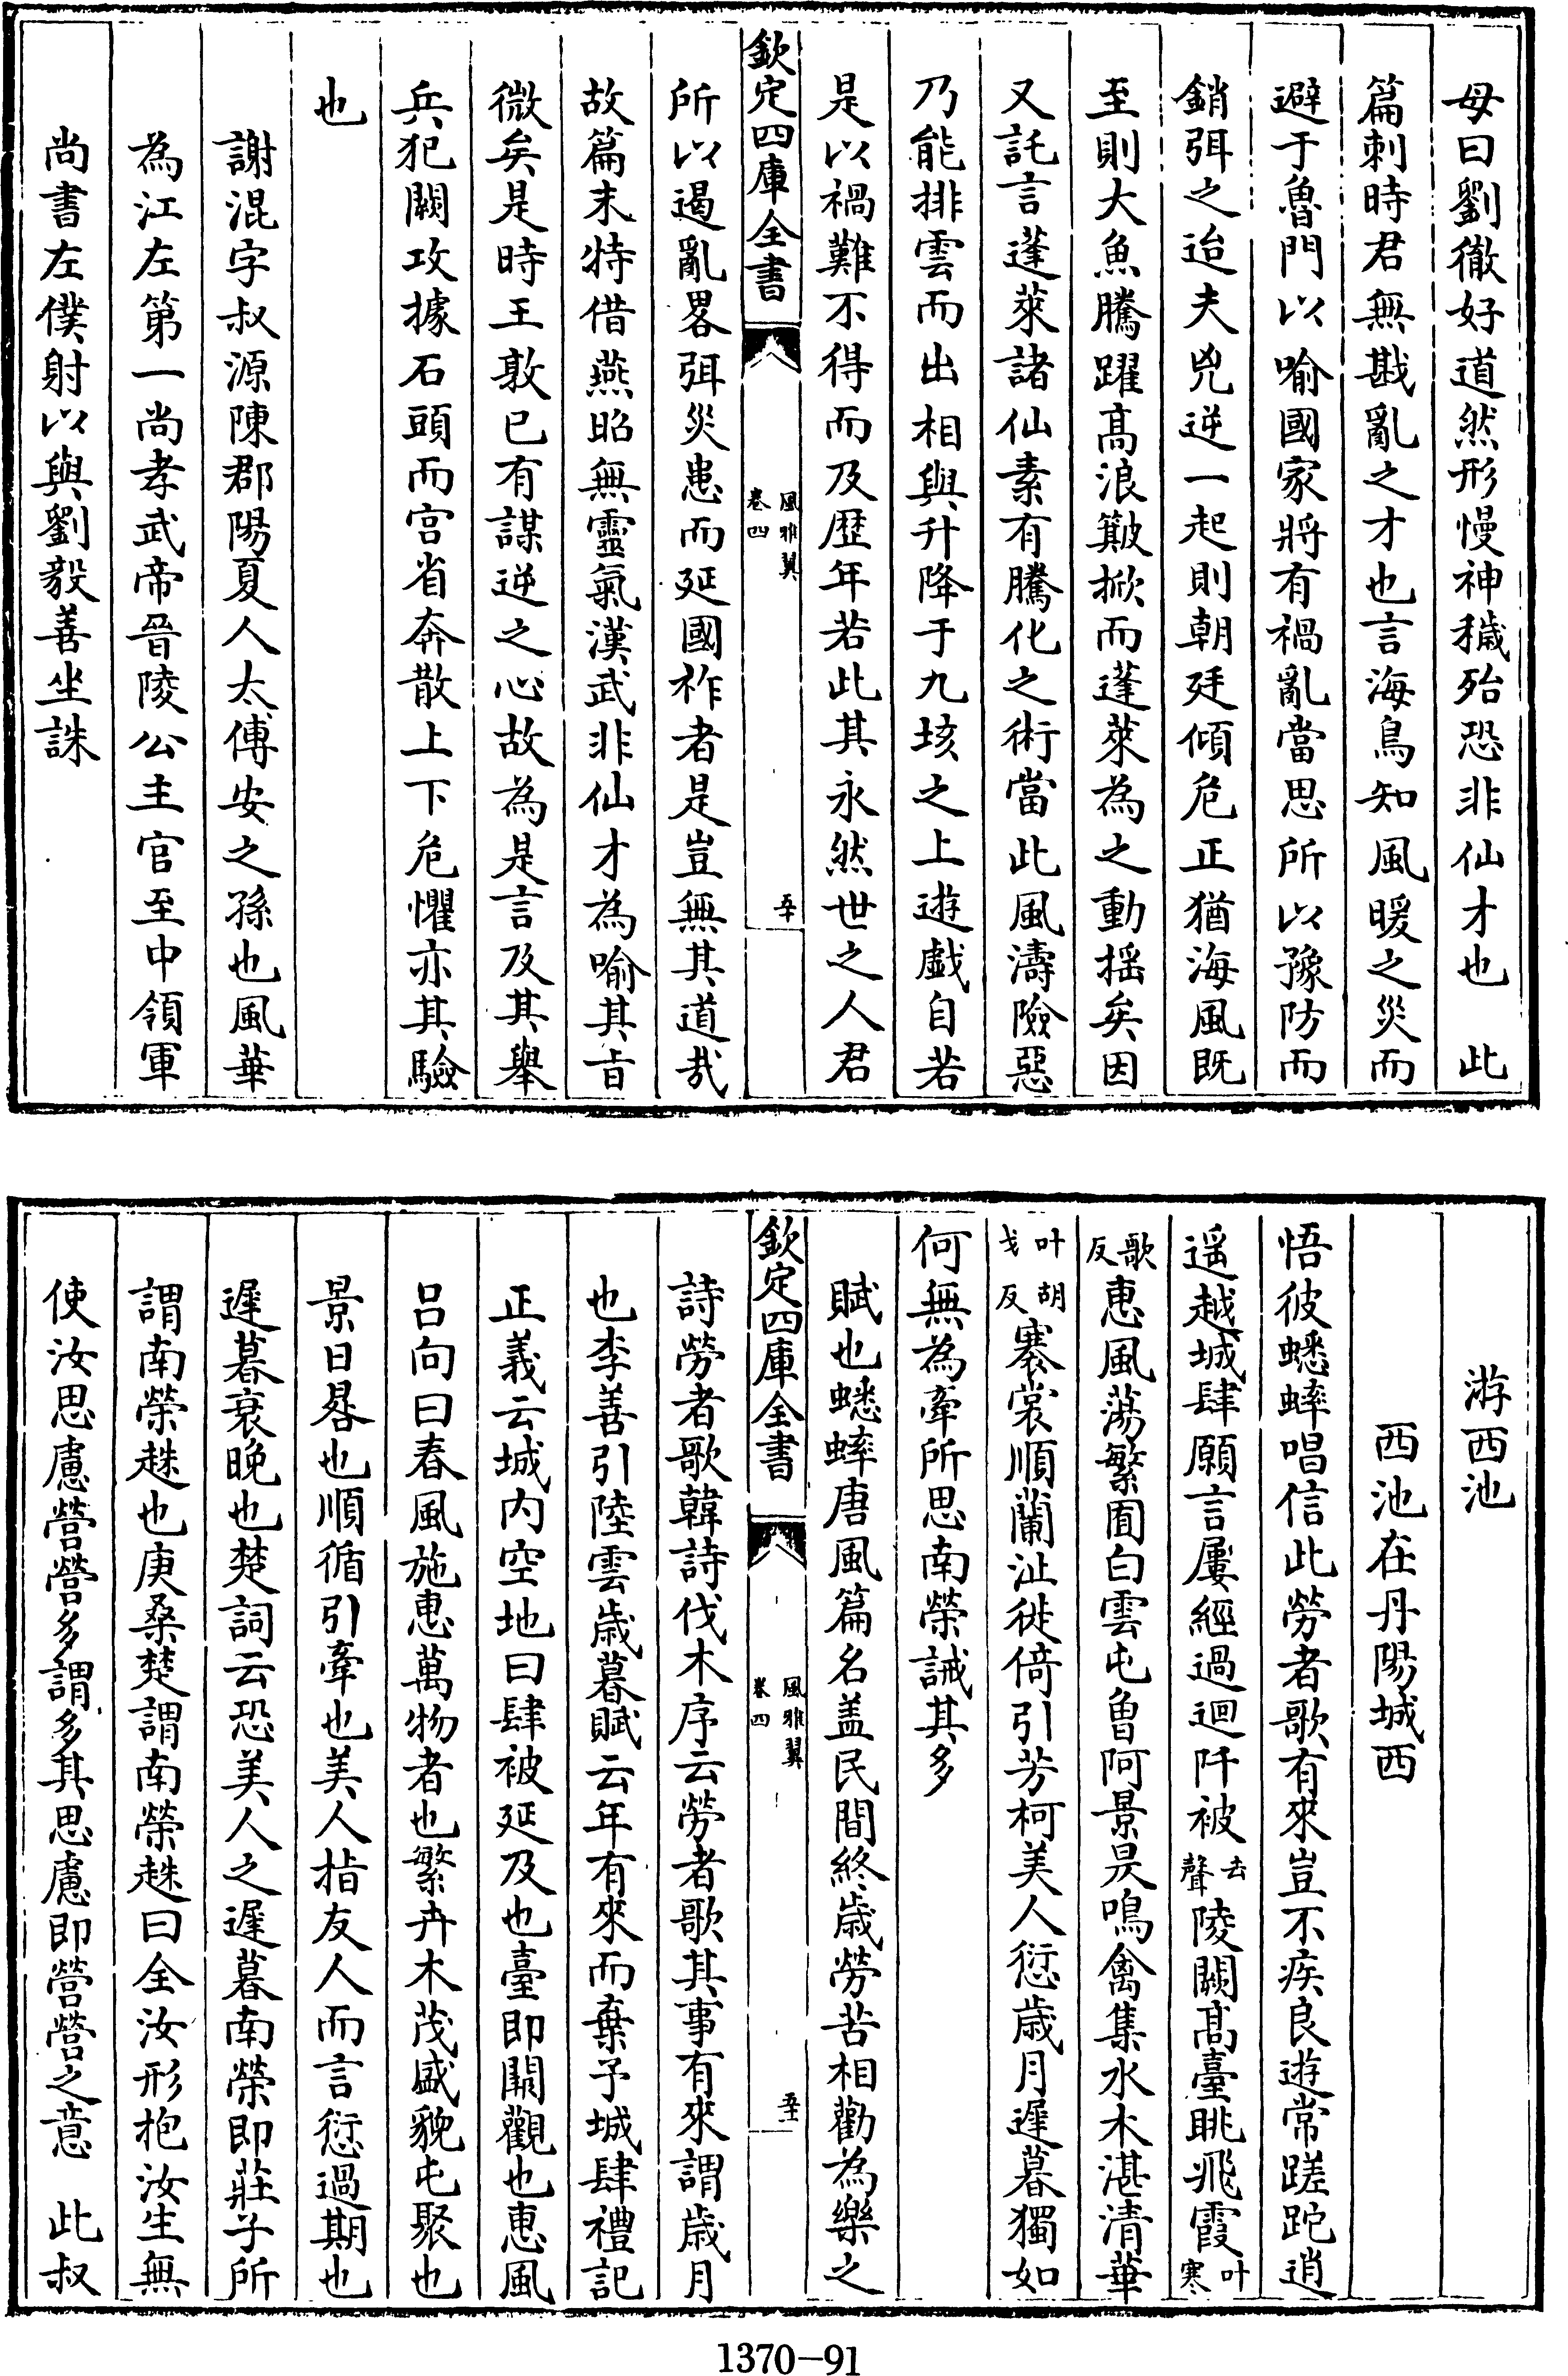 母曰劉徹好道然形慢神穢殆恐非仙才也　此
篇刺時君無戡亂之才也言海鳥知風暖之災而
避于魯門以喻國家將有禍亂當思所以豫防而
銷弭之迨夫兇逆一起則朝廷傾危正猶海風既
至則大魚騰躍髙浪簸掀而蓬萊為之動揺矣因
又託言蓬萊諸仙素有騰化之術當此風濤險惡
乃能排雲而出相與升降于九垓之上遊戲自若
是以禍難不得而及歴年若此其永然世之人君
欽定四庫全書
風雅翼
卷四
五十
所以遏亂畧弭災患而延國祚者是豈無其道㢤
故篇末特借燕昭無靈氣漢武非仙才為喻其㫖
微矣是時王敦已有謀逆之心故為是言及其舉
兵犯闕攻據石頭而宫省奔散上下危懼亦其驗
也
謝混字叔源陳郡陽夏人太傅安之孫也風華
為江左第一尚孝武帝晉陵公主官至中領軍
尚書左僕射以與劉毅善坐誅
游西池
西池在丹陽城西
悟彼蟋蟀唱信此勞者歌有來豈不疾良遊常蹉跎逍
遥越城肆願言屢經過迴阡被去聲陵闕髙臺眺飛霞叶寒
歌反惠風蕩繁囿白雲屯曽阿景昃鳴禽集水木湛清華
叶胡戈反褰裳順蘭沚徙倚引芳柯美人愆歳月遲暮獨如
何無為牽所思南榮誡其多
賦也蟋蟀唐風篇名盖民間終歳勞苦相勸為樂之
欽定四庫全書
風雅翼
卷四
五十一
詩勞者歌韓詩伐木序云勞者歌其事有來謂歳月
也李善引陸雲歳暮賦云年有來而棄予城肆禮記
正義云城内空地曰肆被延及也臺即闕觀也惠風
吕向曰春風施惠萬物者也繁卉木茂盛貌屯聚也
景日晷也順循引牽也美人指友人而言愆過期也
遲暮衰晚也楚詞云恐美人之遲暮南榮即莊子所
謂南榮趎也庚桑楚謂南榮趎曰全汝形抱汝生無
使汝思慮營營多謂多其思慮即營營之意　此叔
1370-91